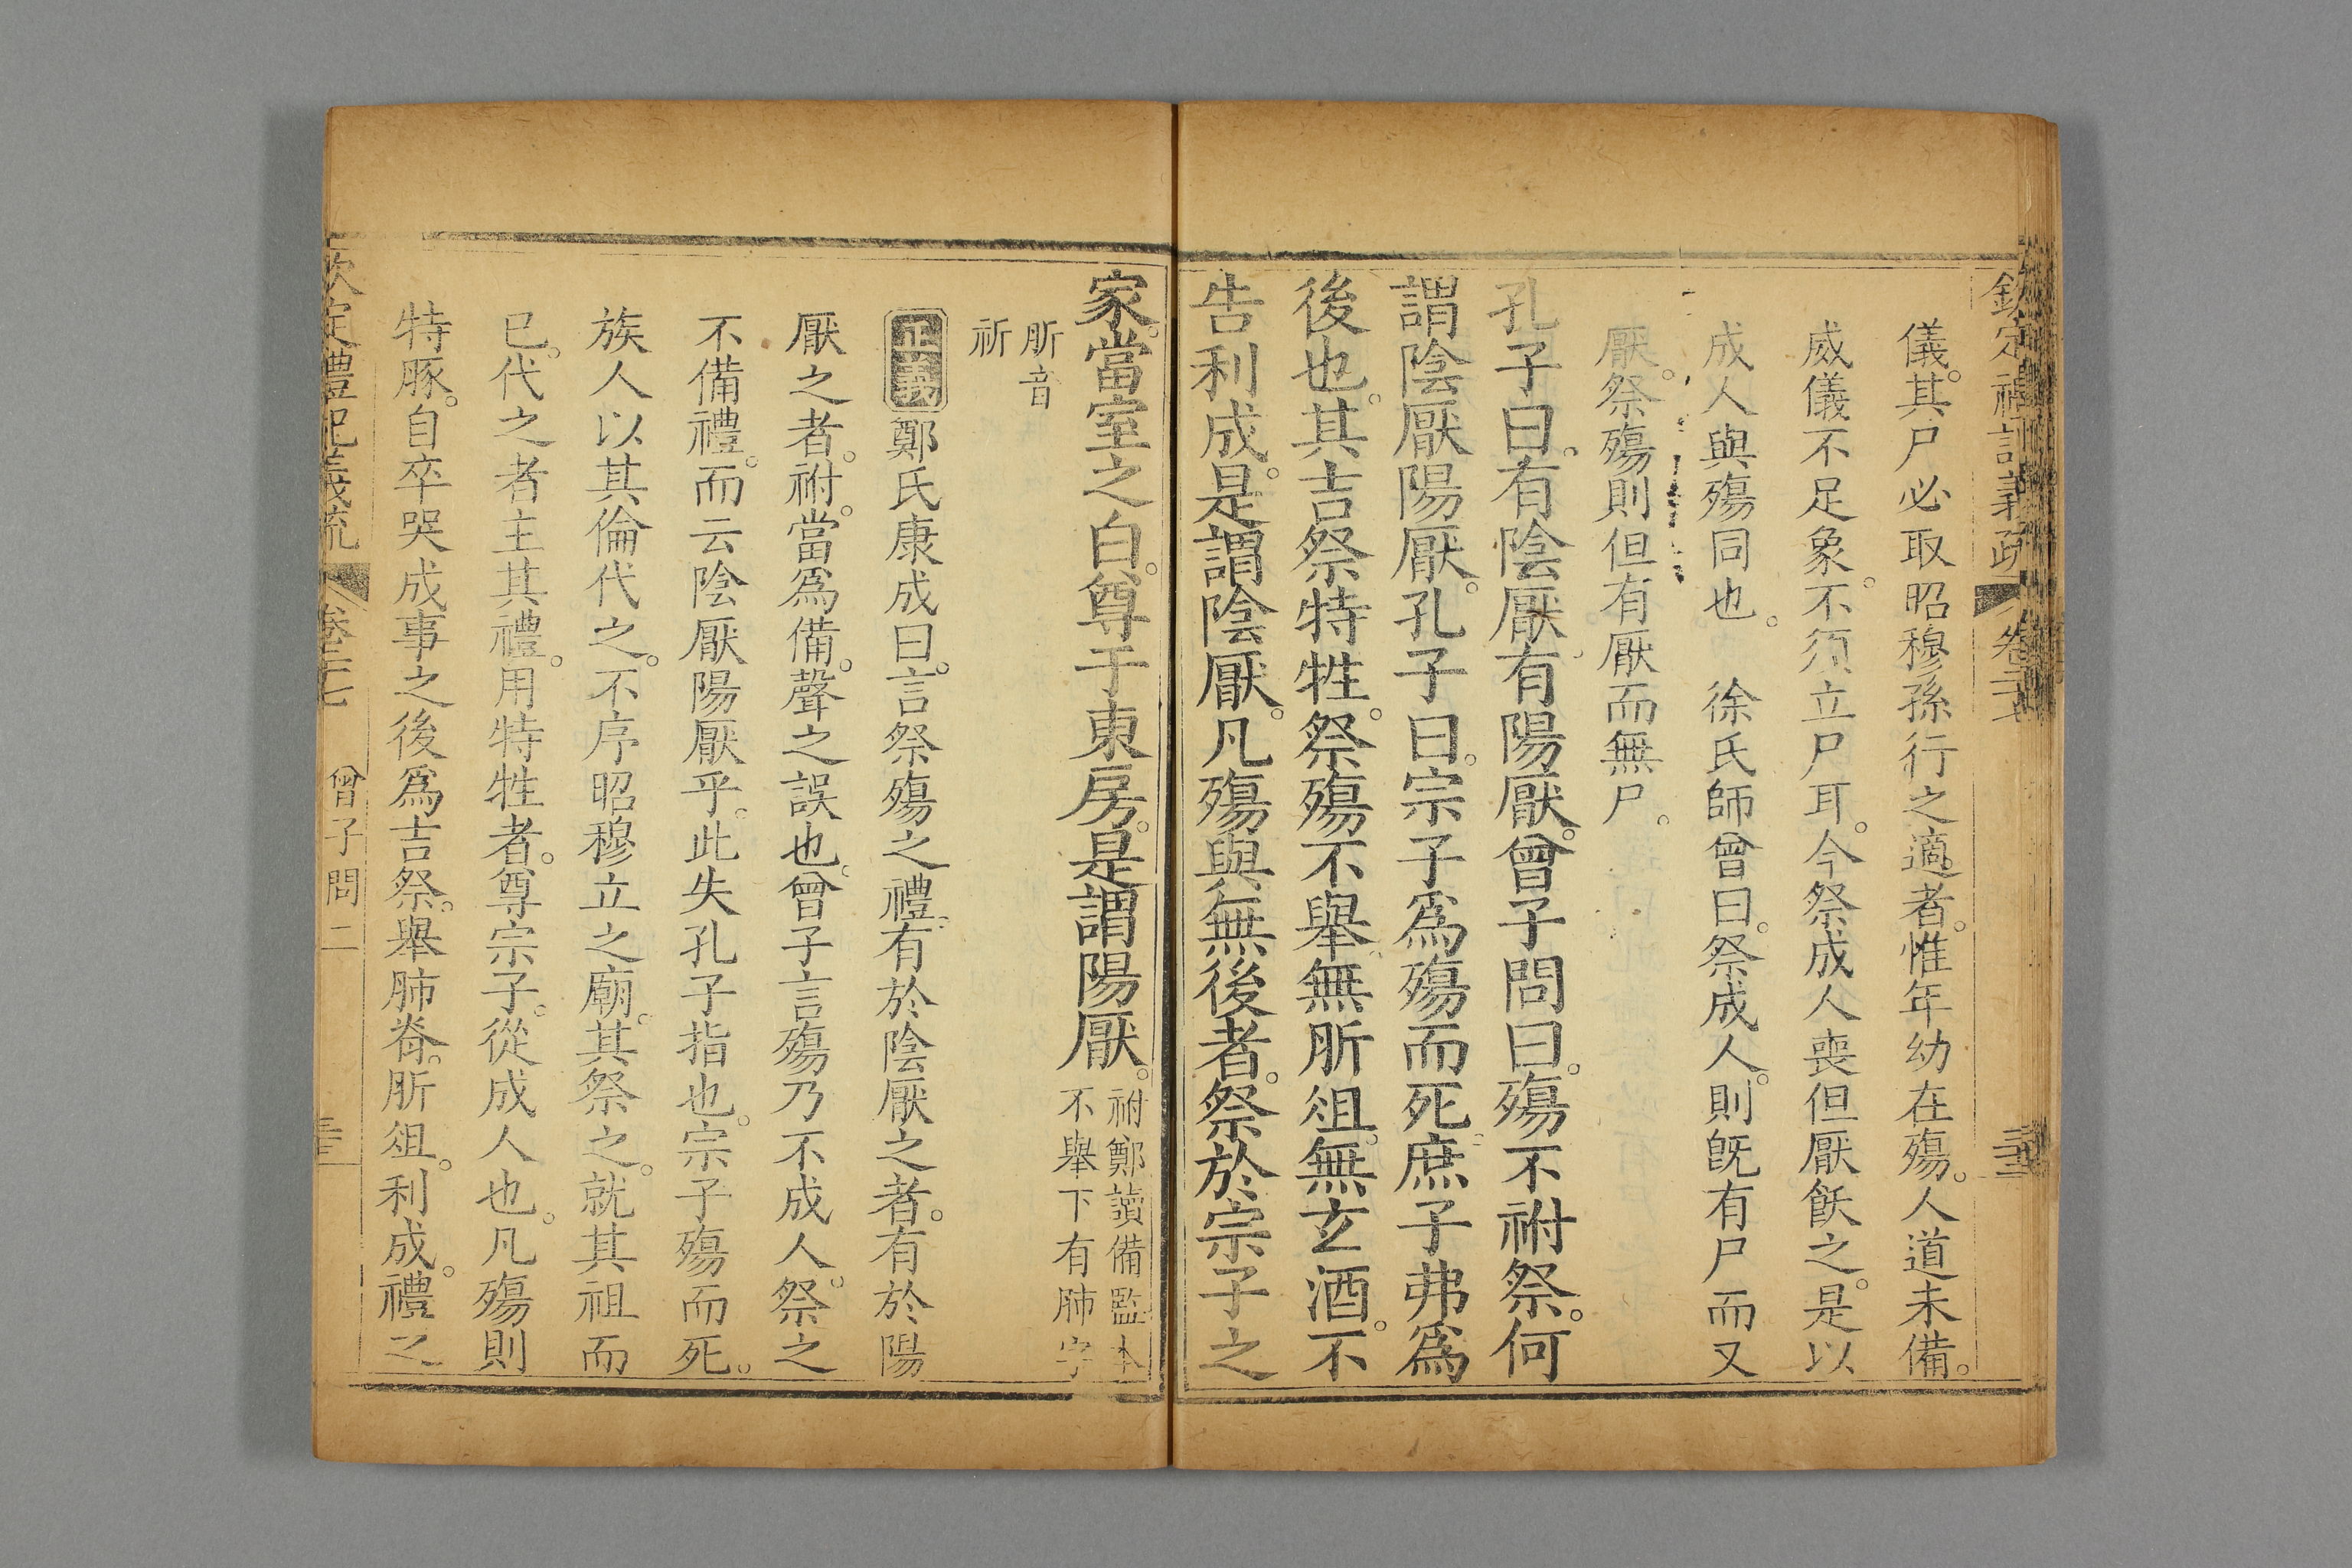 欽定禮記義疏 卷二十七
儀。其尸必取昭穆孫行之適者。惟年幼在殤。人道未備。
威儀不足象。不須立尸耳。今祭成人喪但厭飫之。是以
成人與殤同也。 徐氏師曾曰。祭成人。則旣有尸而又
厭。祭殤則但有厭而無尸。
孔子曰。有陰厭。有陽厭。曾子問曰。殤不祔祭。何
謂陰厭陽厭。孔子曰。宗子爲殤而死。庶子弗爲
後也。其吉祭特牲。祭殤不舉。無肵俎。無玄酒。不
告利成。是謂陰厭。凡殤與無後者。祭於宗子之
家。當室之白。尊于東房。是謂陽厭。
祔鄭讀備監本
不舉下有肺字
肵音
祈
正義鄭氏康成曰。言祭殤之禮。有於陰厭之者。有於陽
厭之者。祔。當爲備。聲之誤也。曾子言殤乃不成人。祭之
不備禮。而云陰厭陽厭乎。此失孔子指也。宗子殤而死。
族人以其倫代之。不序昭穆立之廟。其祭之。就其祖而
已。代之者主其禮。用特牲者。尊宗子。從成人也。凡殤則
特豚。自卒哭成事之後爲吉祭。舉肺脊。肵俎。利成。禮之
欽定禮記義疏 卷二十七 曾子問二